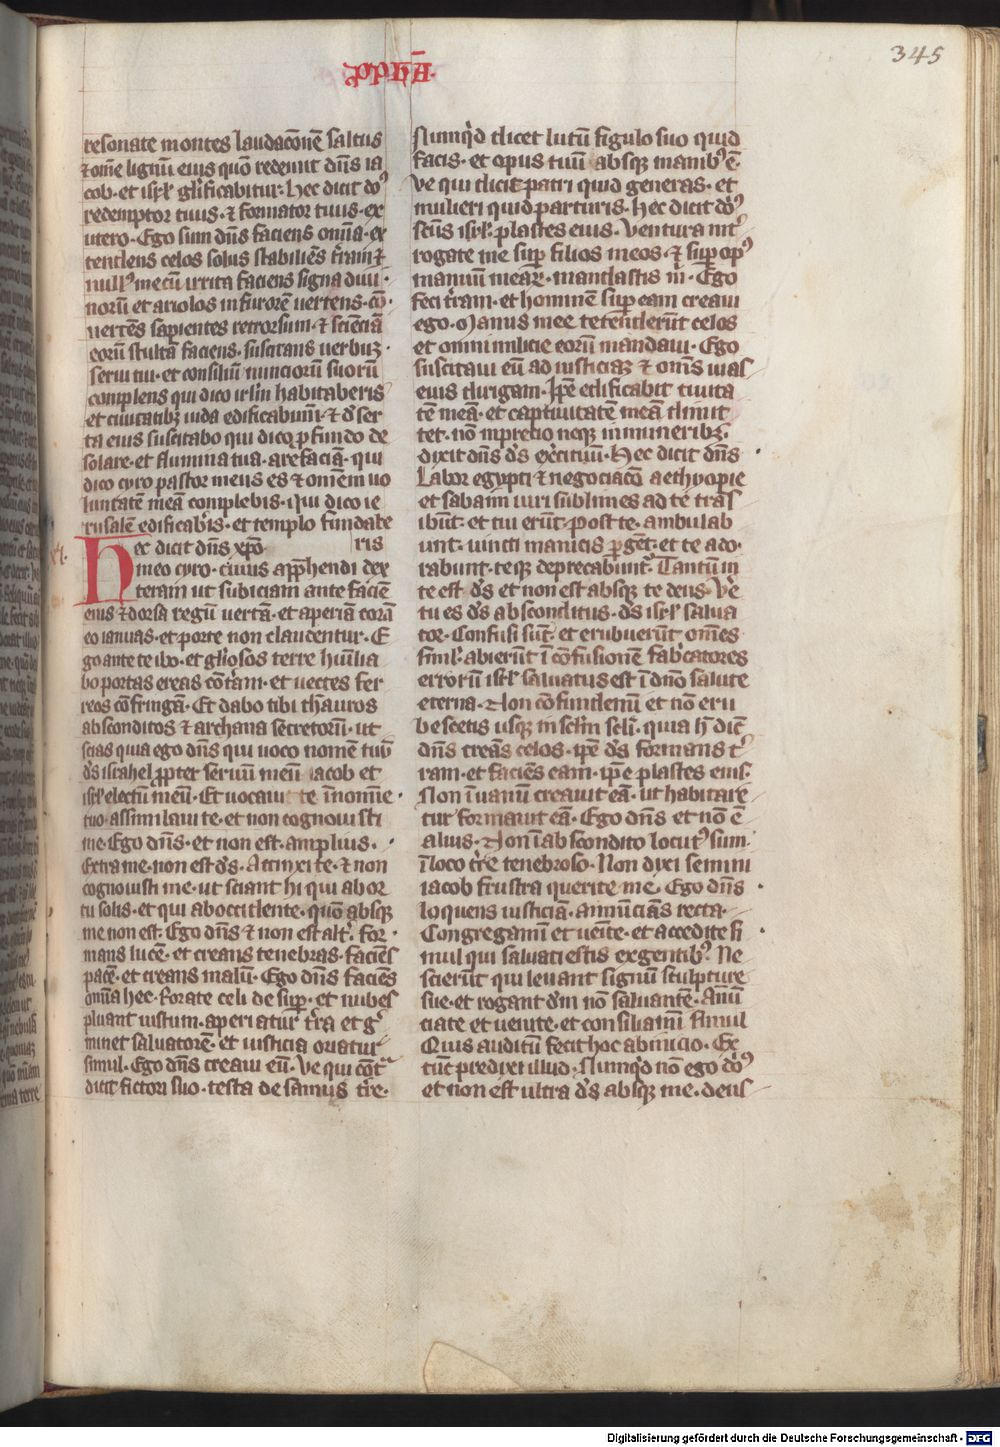 pph̄A.
345
resonate montes laudac̄onē saltus
⁊ om̄e lignū eius quo redemit dn̄s ia
cob · et isr̄l gl̄ificabitur · Hec dicit do᷒
redemptor tuus · ⁊ formator tuus · ex
utero · Ego sum dn̄s faciens om̄ia · ex
tendens celos solus stabiliēs t̄ram ⁊
null᷒ mecū irrita faciens signa diui ·
norū et ariolos in furorē uertens · cō ·
uertēs sapientes retrorsum · ⁊ sciēciā
eorū stultā faciens · suscitans uerbuz ·
serui tui · et consiliū nunciorū suorū
complens qui dico irl̄m habitaberis
et ciuitatibz iuda edificabimī · ⁊ d̄ser
ta eius suscitabo qui dico p̱fundo de
solare · et flumina tua · arefaciā · qui
dico cyro pastor meus es ⁊ om̄em uo
luntatē meā complebis · Qui dico ie
rusalē edificab̓is · et templo fundabe
Hec dicit dn̄s xp̄o ris
meo cyro · cuius app̄hendi dex
teram ut subiciam ante faciē
eius ⁊ dorsa regū uertā · et aperiā corā
eo ianuas · et porte non claudentur · E
go ante te ibo · et gl̄iosos terre humilia
bo portas ereas cōt̓am · et uectes fer
reos cōfringā · Et dabo tibi thauros
absconditos ⁊ archana secretorū · ut
scias quia ego dn̄s qui uoco nomē tuū
d̄s israhel p̱pter seruū meū iacob et
isr̄l electū meū · Et uocaui te ī nom̄ie ·
tuo · assimilaui te · et non cognouisti
me · Ego dn̄s · et non est amplius ·
Extra me · non est d̄s · Accinxi te · ⁊ non
cognouisti me · ut sciant hi qui ab or
tu solis · et qui ab occidente · quō absqz
me non est · Ego dn̄s ⁊ non est alt̓ · for ·
mans lucē · et creans tenebras · faciēs
pacē · et creans malū · Ego dn̄s faciēs
om̄ia hec · Rorate celi de sup̱ · et nubes
pluant iustum · aperiatur t̄ra et g̓
minet saluatorē · et iusticia oriatur
simul · Ego dn̄s creaui eū · Ve qui cōt̓
dicit fictori suo · testa de samiis t̄re ·
Nunq̓d dicet lutū figulo suo quid
facis · et opus tuū absqz manib᷒ ē ·
Ve qui dicit patri quid generas · et
mulieri quid parturis · Hec dicit do᷒
sc̄us isr̄l · plastes eius · Ventura int̓
rogate me sup̱ filios meos · ⁊ sup̱ op᷒
manuū mearz · mandastis m̄ · Ego
feci t̄ram · et hominē sup̱ eam creaui
ego · Manus mee tetenderūt celos
et omni milicie eorū mandaui · Ego
suscitaui eū ad iusticiaz ⁊ om̄s uias
eius dirigam · Ip̄e edificabit ciuita
tē meā · et captiuitatē meā dimit
tet · nō in precio neqz in muneribz ·
dixit dn̄s d̄s ex̓cituū · Hec dicit dn̄s ·
Labor egypti ⁊ negociacō aethyopie
et sabaim uiri sublimes ad te trās
ibūt · et tui erūt · post te · ambulab
unt · uincti manicis p̱gēt · et te ado ·
rabunt · teqz deprecabunt̓ · Tantū in
te est d̄s et non est absqz te deus · Ve
tu es d̄s absconditus · d̄s isr̄l salua
tor · Confusi sūt · et erubuerūt om̄es
siml̓ · abierūt ī cōfusionē fab̓catores
errorū isr̄l saluatus est ī dn̄o salute
eterna · Non cōfundemī et nō eru
bescetis usqz in sc̄lm sc̄li · quia h̄ dic̄
dn̄s creās celos · ip̄e d̄s formans t̓
ram · et faciēs eam · ip̄e plastes eius ·
Non ī uanū creauit eā · ut habitare
tur formauit eā · Ego dn̄s et nō ē
alius · Non ī abscondito locut᷒ sum ·
ī loco t̄re tenebroso · Non dixi semini
iacob frustra querite me · Ego dn̄s ·
loquens iusticiā · annūciās recta ·
Congregamī et ueīte · et accedite si ·
mul qui saluati estis ex gentib᷒ · Ne
scierūt qui leuant signū sculpture
sue · et rogant dm̄ nō saluantē · Anū
ciate et ueīte · et consiliamī simul
Quis auditū fecit hoc ab inicio · Ex
tūc predixi illud · Nunq̓d nō ego do᷒
et non est ultra d̄s absqz me · deus
Digitalisierung gefördert durch die Deutsche Forschungsgemeinschaft - DFG